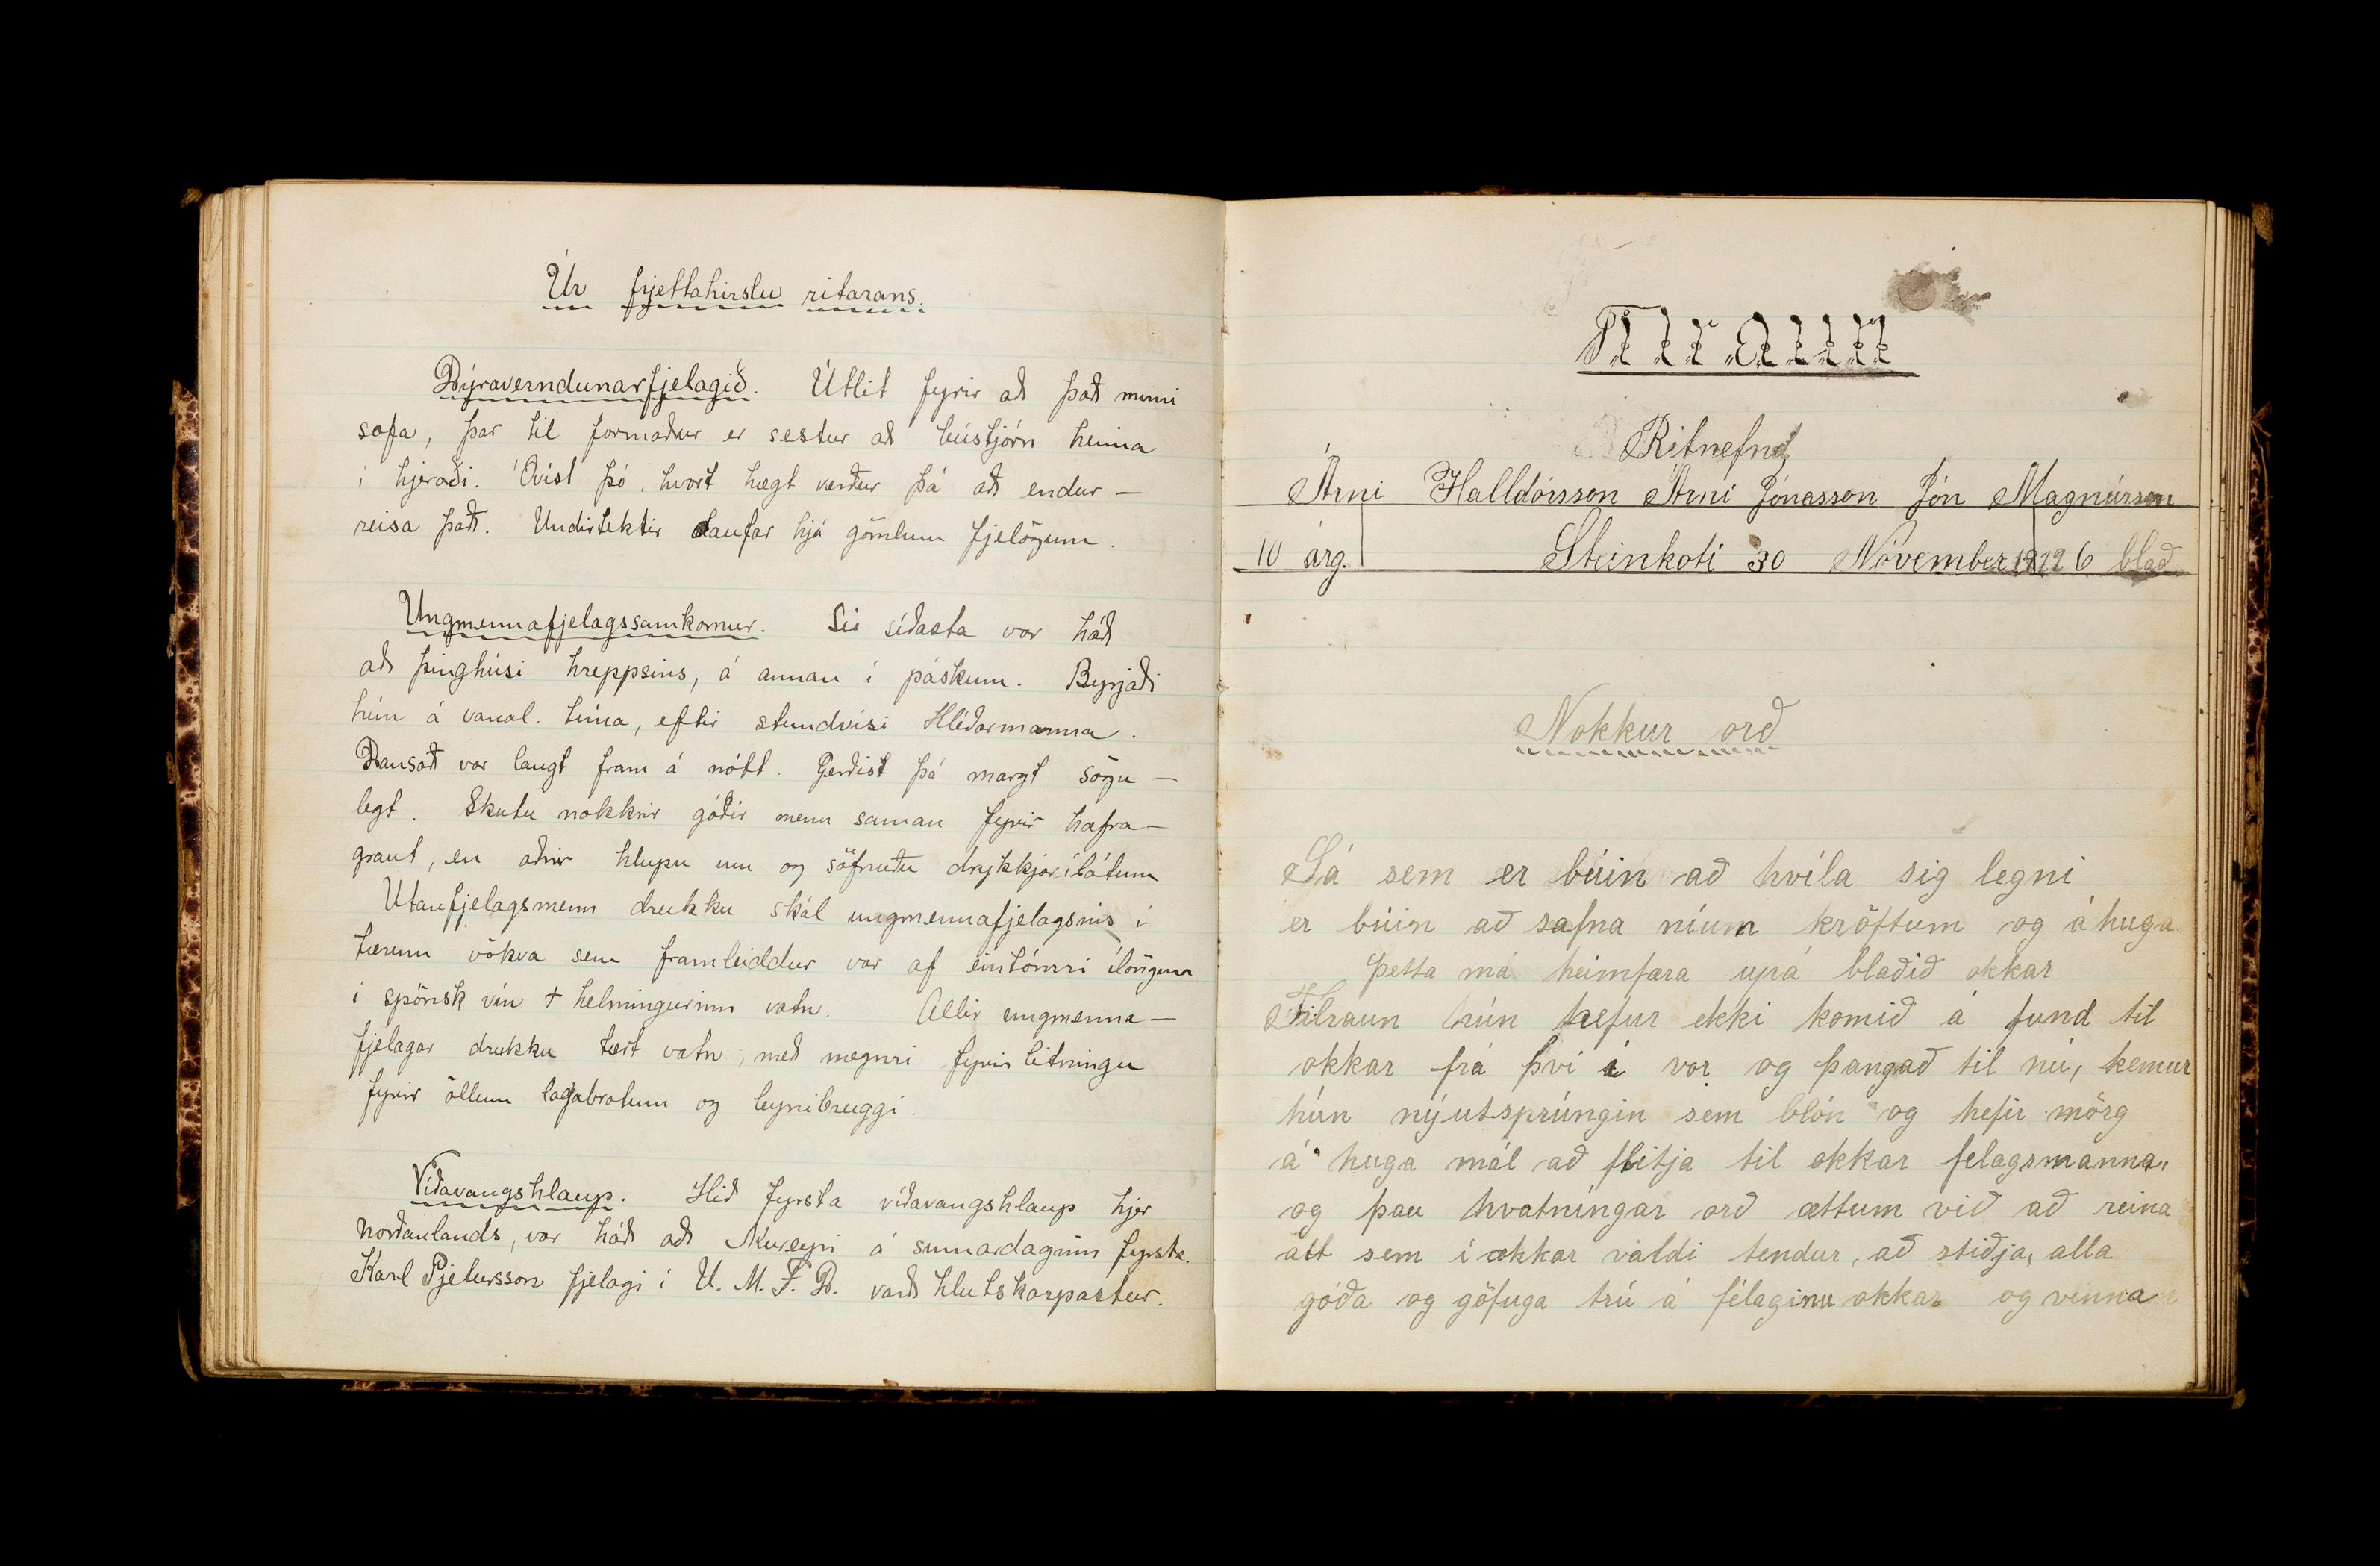 Úr frjettahirslu ritarans.
Dýraverndunarfjelagið. Útlit fyrir að það muni
sofa, þar til formaður er sestur að bústjórn heima
í hjeraði. Óvíst þó, hvort hægt verður þá að endur-
reisa það. Undirtektir daufar hjá gömlum fjelögum.
Ungmennafjelagssamkomur. Sú síðasta var háð
að þinghúsi hreppsins, á annan í páskum. Byrjaði
hún á vanal. tíma, eftir stundvísi Hlíðarmanna.
Dansað var langt fram á nótt. Gerðist þá margt sögu-
legt. Skutu nokkrir góðir menn saman fyrir hafra-
graut, en aðrir hlupu um og söfnuðu drykkjarílátum
Utanfjelagsmenn drukku skál ungmennafjelagsins í
tærum vökva sem framleiddur var af eintómri ílöngun
í spönsk vín + helmingurinn vatn. Allir ungmenna-
fjelagar drukku tært vatn, með megnri fyrirlitningu
fyrir öllum lagabrotum og leynibruggi.
Víðavangshlaup. Hið fyrsta víðavangshlaup hjer
norðanlands, var háð að Akureyri á sumardaginn fyrsta.
Karl Pjetursson fjelagi í U. M. F. D. varð hlutskarpastur.
Tilraun
Ritnefnd
Árni Halldórsson Árni Jónasson Jón Magnússon
10 árg. Steinkoti 30 Nóvember 1912 6 blað
Nokkur orð
Sá sem er búin að hvíla sig legni
er búin að safna níum kröftum og áhuga
Þetta má heimfæra upá blaðið okkar
Tilraun hún hefur ekki komið á fund til
okkar frá því í vor og þangað til nú, kemur
hún nýutsprúngin sem blón og hefir mörg
á huga mál að flitja til okkar felagsmanna,
og þau hvatníngar orð ættum við að reina
alt sem í okkar valdi tendur, að stiðja, alla
góða og göfuga trú á félaginu okkar og vinna